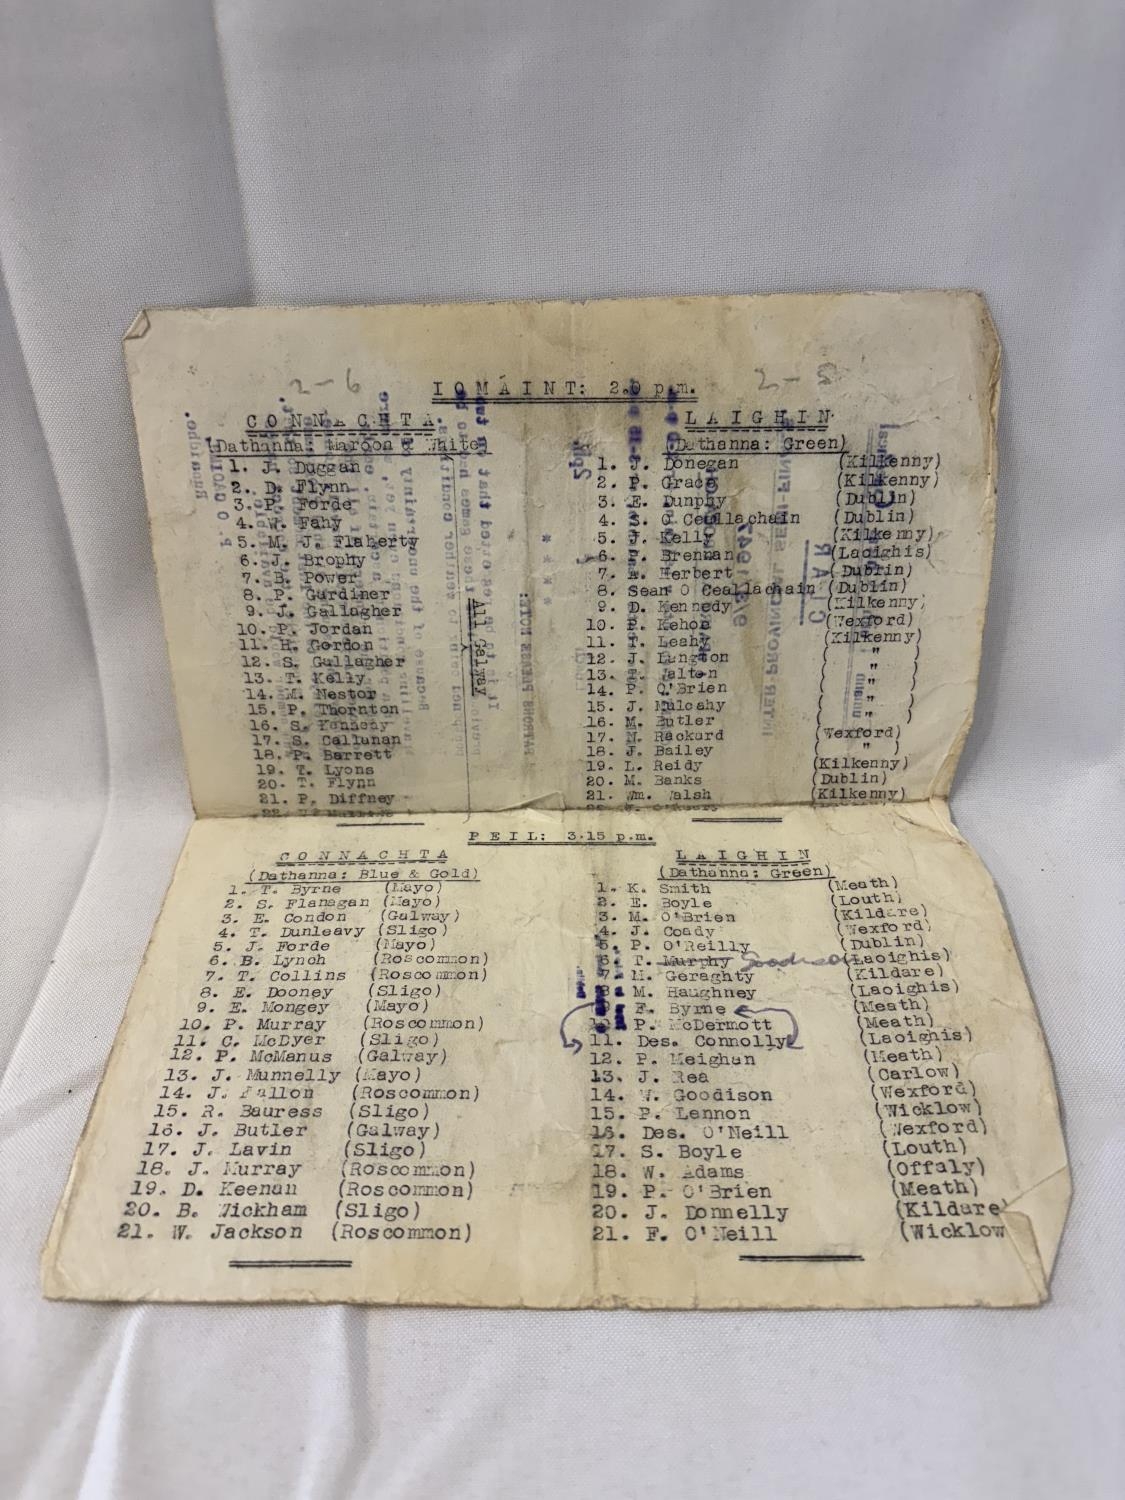 2-6
IOMÁINT: 2.0 p.m.
2-5
CONNACHTA
(Dathanna: Maroon & White)
1. J. Duggan
2. D. Flynn
3. P. Forde
4. W. Fahy
5. M. J. Flaherty
6. J. Brophy
7. B. Power
8. P. Gardiner
9. J. Gallagher
10. P. Jordan
11. H. Gordon
12. S. Gallagher
13. T. Kelly
14. M. Nestor
15. P. Thornton
16. S. Kennedy
17. S. Callanan
18. P. Barrett
19. T. Lyons
20. T. Flynn
21. P. Diffney
22.
All Galway
LAIGHIN
(Dathanna: Green)
1. J. Donegan (Kilkenny)
2. P. Grace (Kilkenny)
3. E. Dunphy (Dublin)
4. S. O Ceallachain (Dublin)
5. J. Kelly (Kilkenny)
6. P. Brennan (Laoighis)
7. A. Herbert (Dublin)
8. Sean O Ceallachain (Dublin)
9. D. Kennedy (Kilkenny)
10. P. Kehoe (Wexford)
11. T. Leahy (Kilkenny)
12. J. Langton ( " )
13. Walton ( " )
14. P. O'Brien ( " )
15. J. Mulcahy ( " )
16. M. Butler ( " )
17. N. Rackard (Wexford)
18. J. Bailey ( " )
19. L. Reidy (Kilkenny)
20. M. Banks (Dublin)
21. Wm. Walsh (Kilkenny)
PEIL: 3.15 p.m.
CONNACHTA
(Dathanna: Blue & Gold)
1. T. Byrne (Mayo)
2. S. Flanagan (Mayo)
3. E. Condon (Galway)
4. T. Dunleavy (Sligo)
5. J. Forde (Mayo)
6. B. Lynch (Roscommon)
7. T. Collins (Roscommon)
8. E. Dooney (Sligo)
9. E. Mongey (Mayo)
10. P. Murray (Roscommon)
11. C. McDyer (Sligo)
12. P. McManus (Galway)
13. J. Munnelly (Mayo)
14. J. Fallon (Roscommon)
15. R. Bauress (Sligo)
16. J. Butler (Galway)
17. J. Lavin (Sligo)
18. J. Murray (Roscommon)
19. D. Keenan (Roscommon)
20. B. Wickham (Sligo)
21. W. Jackson (Roscommon)
LAIGHIN
(Dathanna: Green)
1. K. Smith (Meath)
2. E. Boyle (Louth)
3. M. O'Brien (Kildare)
4. J. Coady (Wexford)
5. P. O'Reilly (Dublin)
6. T. Murphy Goodison (Laoighis)
7. M. Geraghty (Kildare)
8. M. Haughney (Laoighis)
9. F. Byrne (Meath)
10. P. McDermott (Meath)
11. Des. Connolly (Laoighis)
12. P. Meighan (Meath)
13. J. Rea (Carlow)
14. W. Goodison (Wexford)
15. P. Lennon (Wicklow)
16. Des. O'Neill (Wexford)
17. S. Boyle (Louth)
18. W. Adams (Offaly)
19. P. O'Brien (Meath)
20. J. Donnelly (Kildare)
21. F. O'Neill (Wicklow